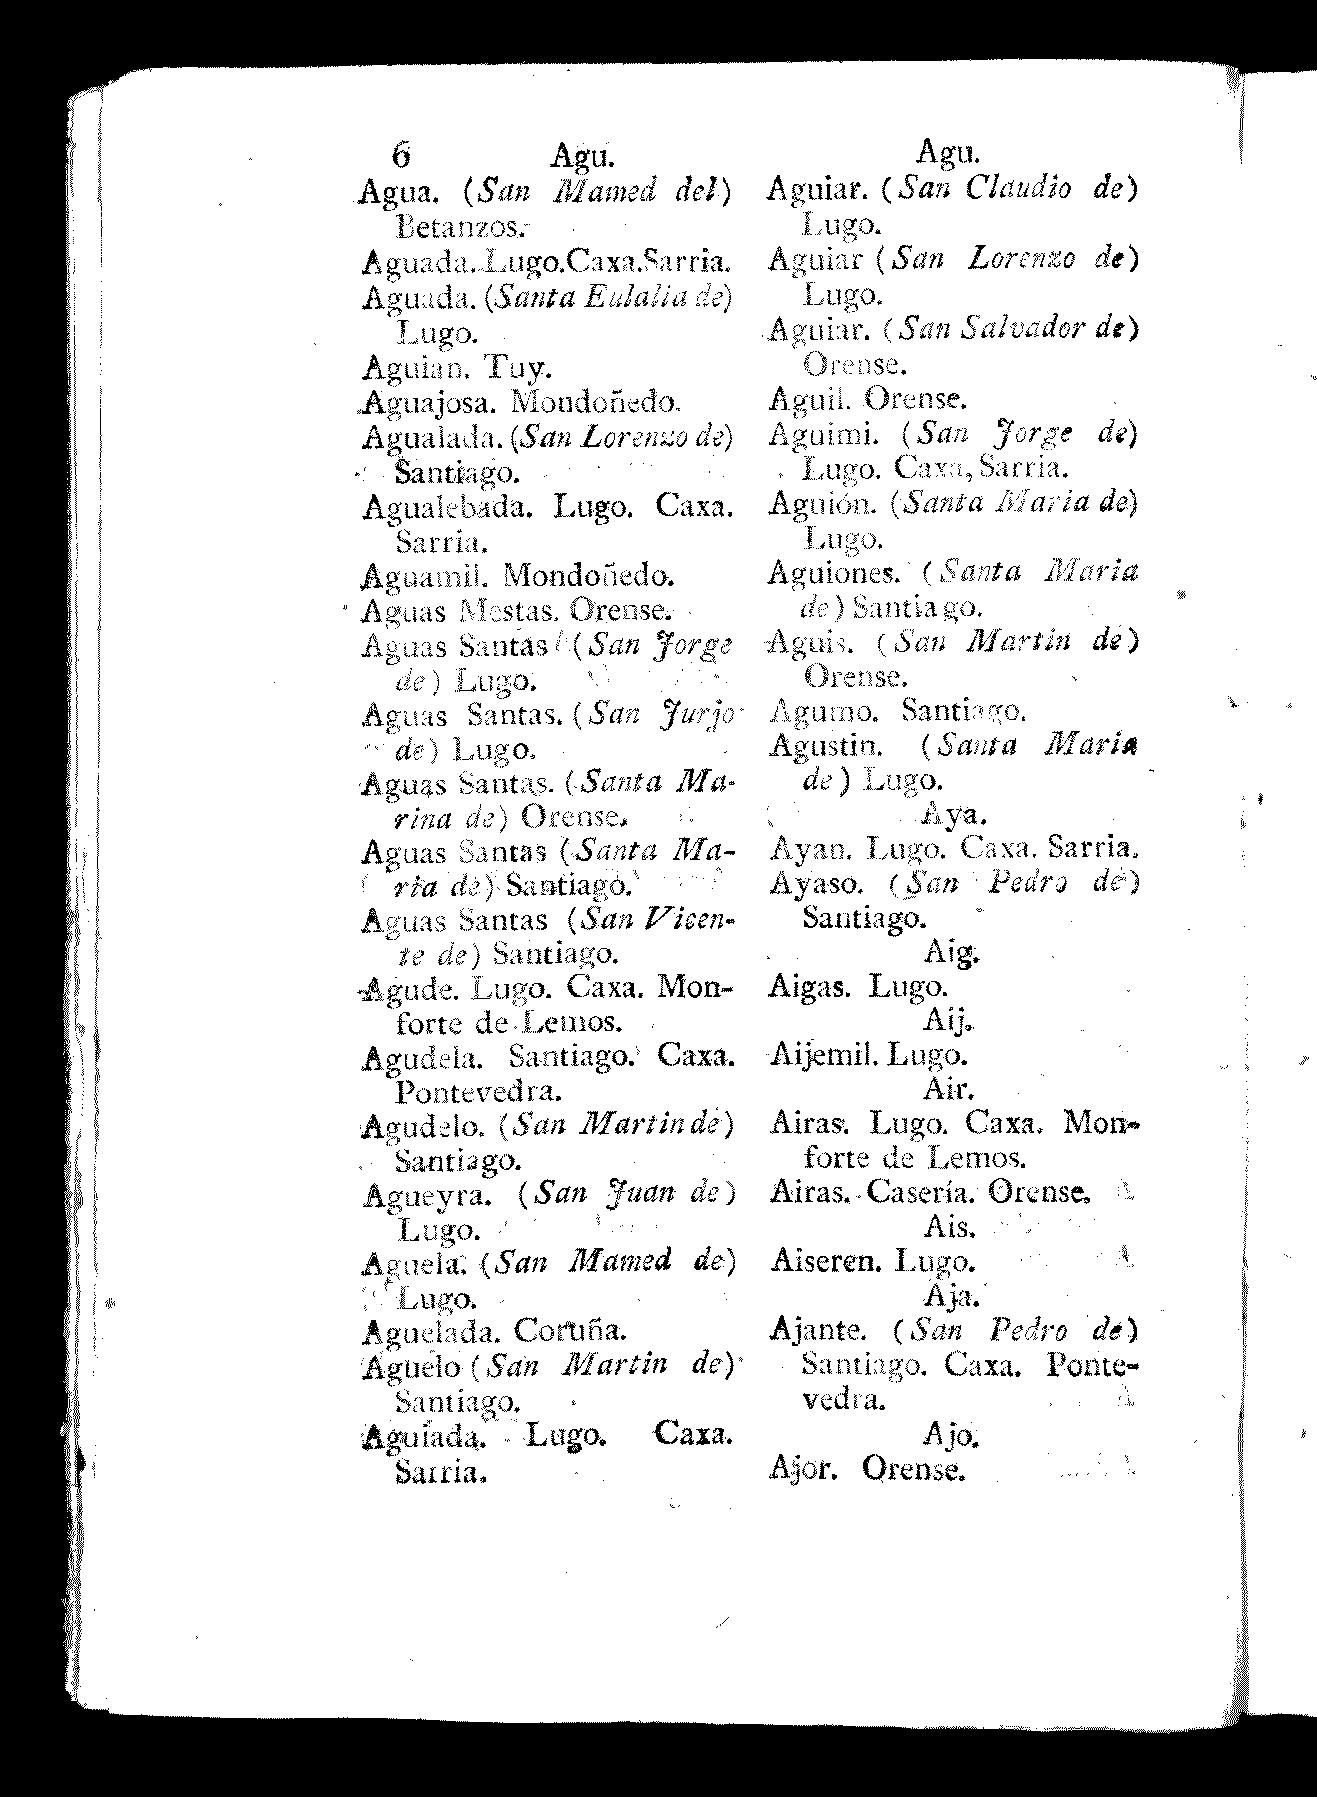 6 Agu.
Agua. (San Mamed del)
Betanzos.
Aguada. Lugo. Caxa. Sarria.
Aguada. (Santa Eulalia de)
Lugo.
Aguian. Tuy.
Aguajosa. Mondoñedo.
Agualada. (San Lorenzo de)
Santiago.
Agualebada. Lugo. Caxa.
Sarria.
Aguamil. Mondoñedo.
Aguas Mestas. Orense.
Aguas Santas (San Jorge
de) Lugo.
Aguas Santas. (San Jurjo
de) Lugo.
Aguas Santas. (Santa Ma-
rina de) Orense.
Aguas Santas (Santa Ma-
ria de) Santiago.
Aguas Santas (San Vicen-
te de) Santiago.
Agude. Lugo. Caxa. Mon-
forte de Lemos.
Agudela. Santiago. Caxa.
Pontevedra.
Agudelo. (San Martin de)
Santiago.
Agueyra. (San Juan de)
Lugo.
Aguela. (San Mamed de)
Lugo.
Aguelada. Coruña.
Aguelo (San Martin de)
Santiago.
Aguiada. Lugo. Caxa.
Sarria.
Agu.
Aguiar. (San Claudio de)
Lugo.
Aguiar (San Lorenzo de)
Lugo.
Aguiar. (San Salvador de)
Orense.
Aguil. Orense.
Aguimi. (San Jorge de)
Lugo. Caxa, Sarria.
Aguión. (Santa Maria de)
Lugo.
Aguiones. (Santa Maria
de) Santiago.
Aguis. (San Martin de)
Orense.
Agumo. Santiago.
Agustin. (Santa Maria
de) Lugo.
Aya.
Ayan. Lugo. Caxa. Sarria.
Ayaso. (San Pedro de)
Santiago.
Aig.
Aigas. Lugo.
Aij.
Aijemil. Lugo.
Air.
Airas. Lugo. Caxa. Mon-
forte de Lemos.
Airas. Casería. Orense.
Ais.
Aiseren. Lugo.
Aja.
Ajante. (San Pedro de)
Santiago. Caxa. Ponte-
vedra.
Ajo.
Ajor. Orense.